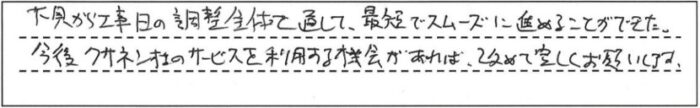 大貝から工事日の調整全体を通して、最短でスムーズに進めることができた。
今後クサネン社のサービスを利用する機会があれば、改めて宜しくお願いします。